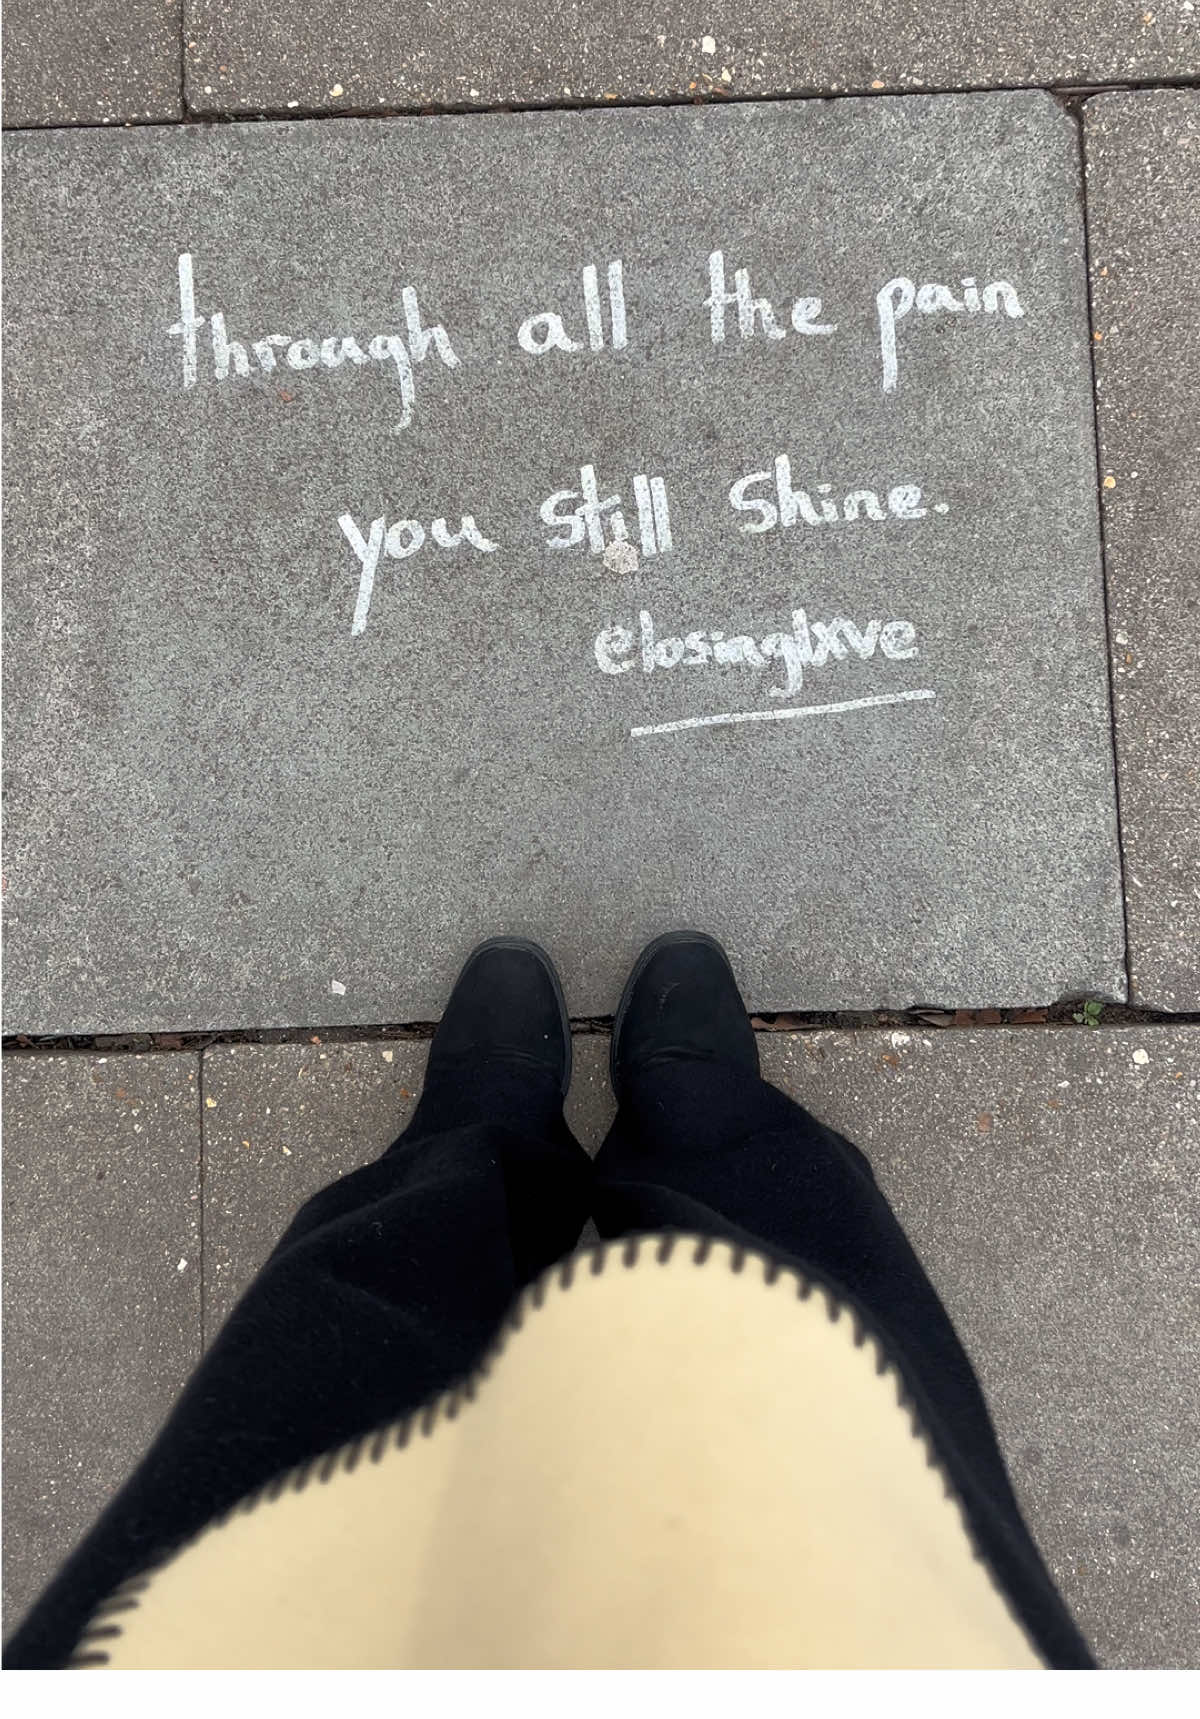 through all the pain
you still shine.
@losinglxve